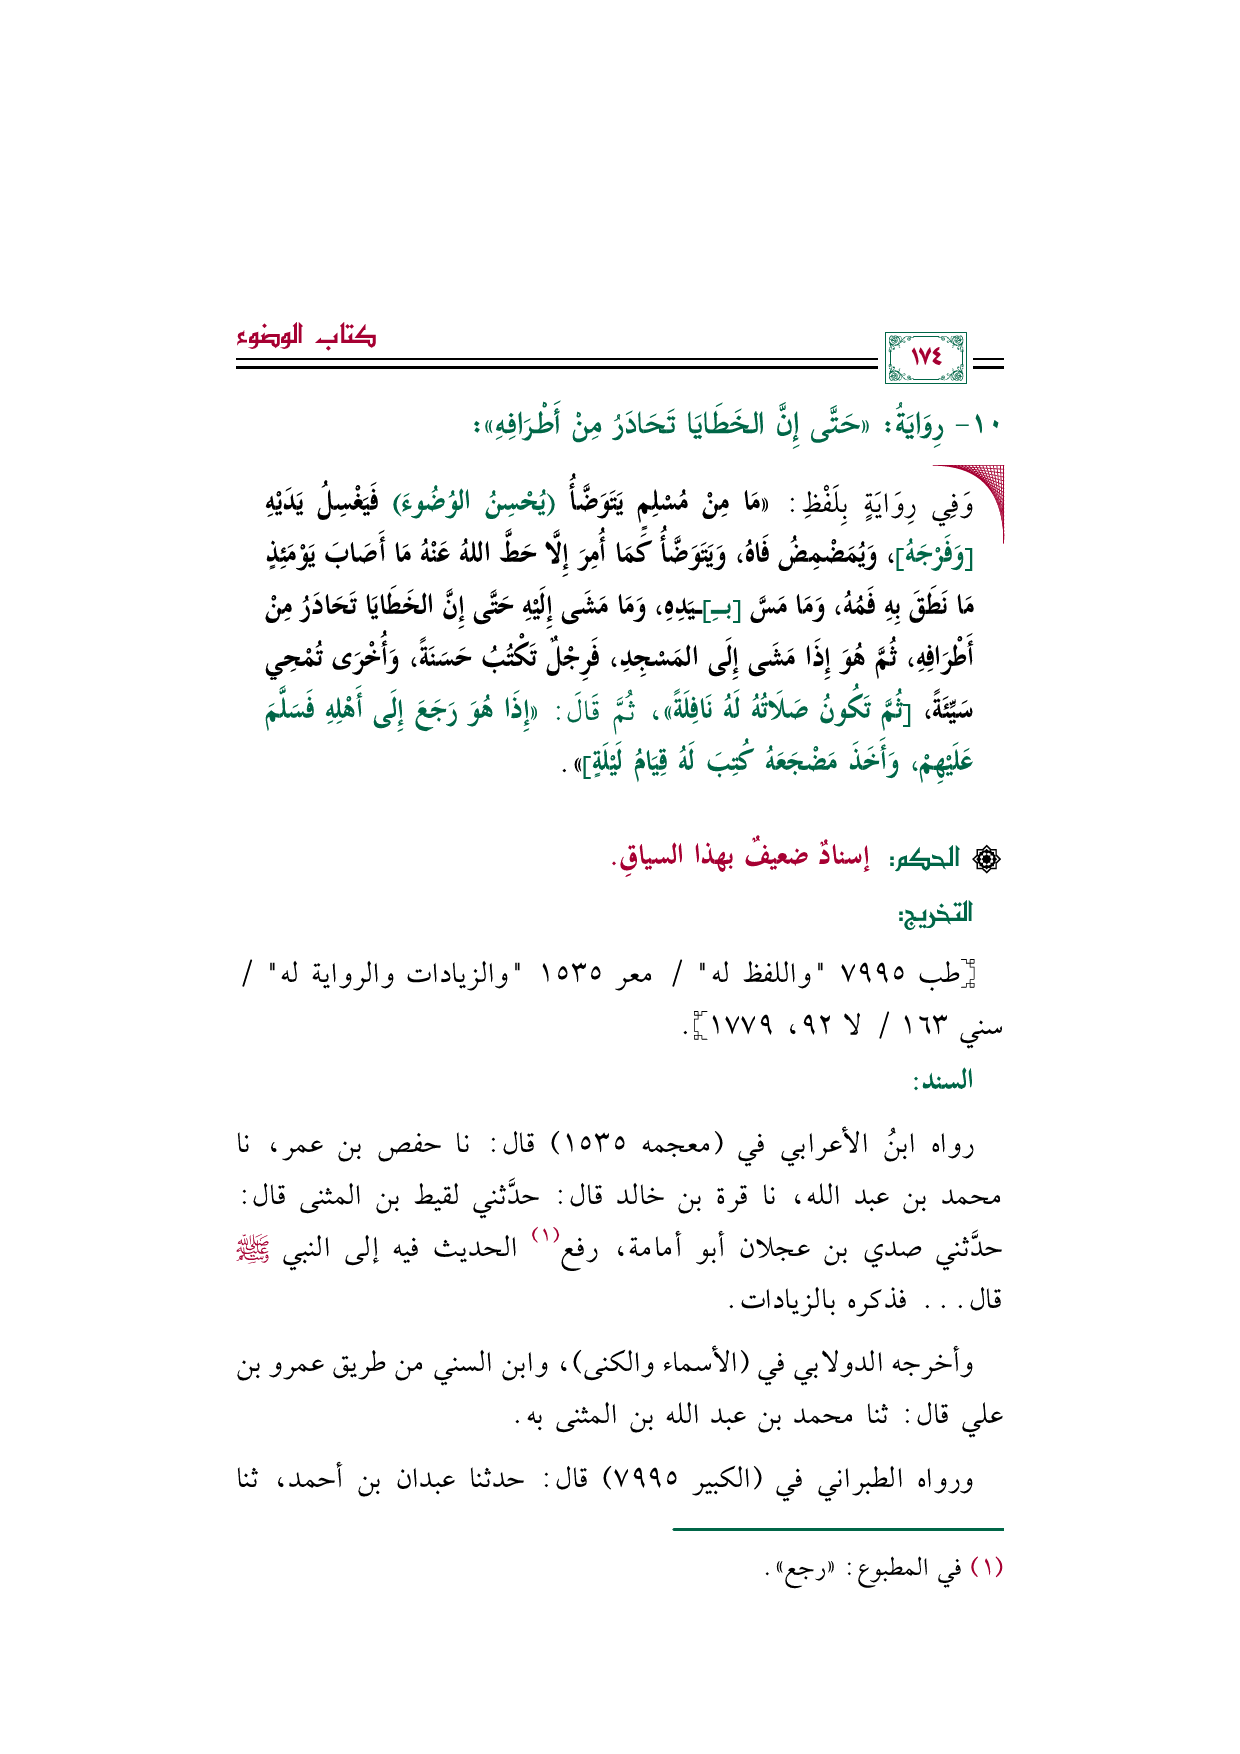 كتاب الوضوء
١٧٤
١٠- رِوَايَةُ: «حَتَّى إِنَّ الخَطَايَا تَحَادَرُ مِنْ أَطْرَافِهِ»:
وَفِي رِوَايَةٍ بِلَفْظِ: «مَا مِنْ مُسْلِمٍ يَتَوَضَّأُ (يُحْسِنُ الوُضُوءَ) فَيَغْسِلُ يَدَيْهِ
[وَفَرْجَهُ]، وَيُمَضْمِضُ فَاهُ، وَيَتَوَضَّأُ كَمَا أُمِرَ إِلَّا حَطَّ اللهُ عَنْهُ مَا أَصَابَ يَوْمَئِذٍ
مَا نَطَقَ بِهِ فَمُهُ، وَمَا مَسَّ [بِـ]ـيَدِهِ، وَمَا مَشَى إِلَيْهِ حَتَّى إِنَّ الخَطَايَا تَحَادَرُ مِنْ
أَطْرَافِهِ، ثُمَّ هُوَ إِذَا مَشَى إِلَى المَسْجِدِ، فَرِجْلٌ تَكْتُبُ حَسَنَةً، وَأُخْرَى تُمْحِي
سَيِّئَةً، [ثُمَّ تَكُونُ صَلَاتُهُ لَهُ نَافِلَةً»، ثُمَّ قَالَ: «إِذَا هُوَ رَجَعَ إِلَى أَهْلِهِ فَسَلَّمَ
عَلَيْهِمْ، وَأَخَذَ مَضْجَعَهُ كُتِبَ لَهُ قِيَامُ لَيْلَةٍ]».
الحكم: إسنادٌ ضعيفٌ بهذا السياقِ.
التخريج:
[طب ٧٩٩٥ "واللفظ له" / معر ١٥٣٥ "والزيادات والرواية له" /
سني ١٦٣ / لا ٩٢، ١٧٧٩].
السند:
رواه ابنُ الأعرابي في (معجمه ١٥٣٥) قال: نا حفص بن عمر، نا
محمد بن عبد الله، نا قرة بن خالد قال: حدَّثني لقيط بن المثنى قال:
حدَّثني صدي بن عجلان أبو أمامة، رفع(١) الحديث فيه إلى النبي ﷺ
قال... فذكره بالزيادات.
وأخرجه الدولابي في (الأسماء والكنى)، وابن السني من طريق عمرو بن
علي قال: ثنا محمد بن عبد الله بن المثنى به.
ورواه الطبراني في (الكبير ٧٩٩٥) قال: حدثنا عبدان بن أحمد، ثنا
(١) في المطبوع: «رجع».